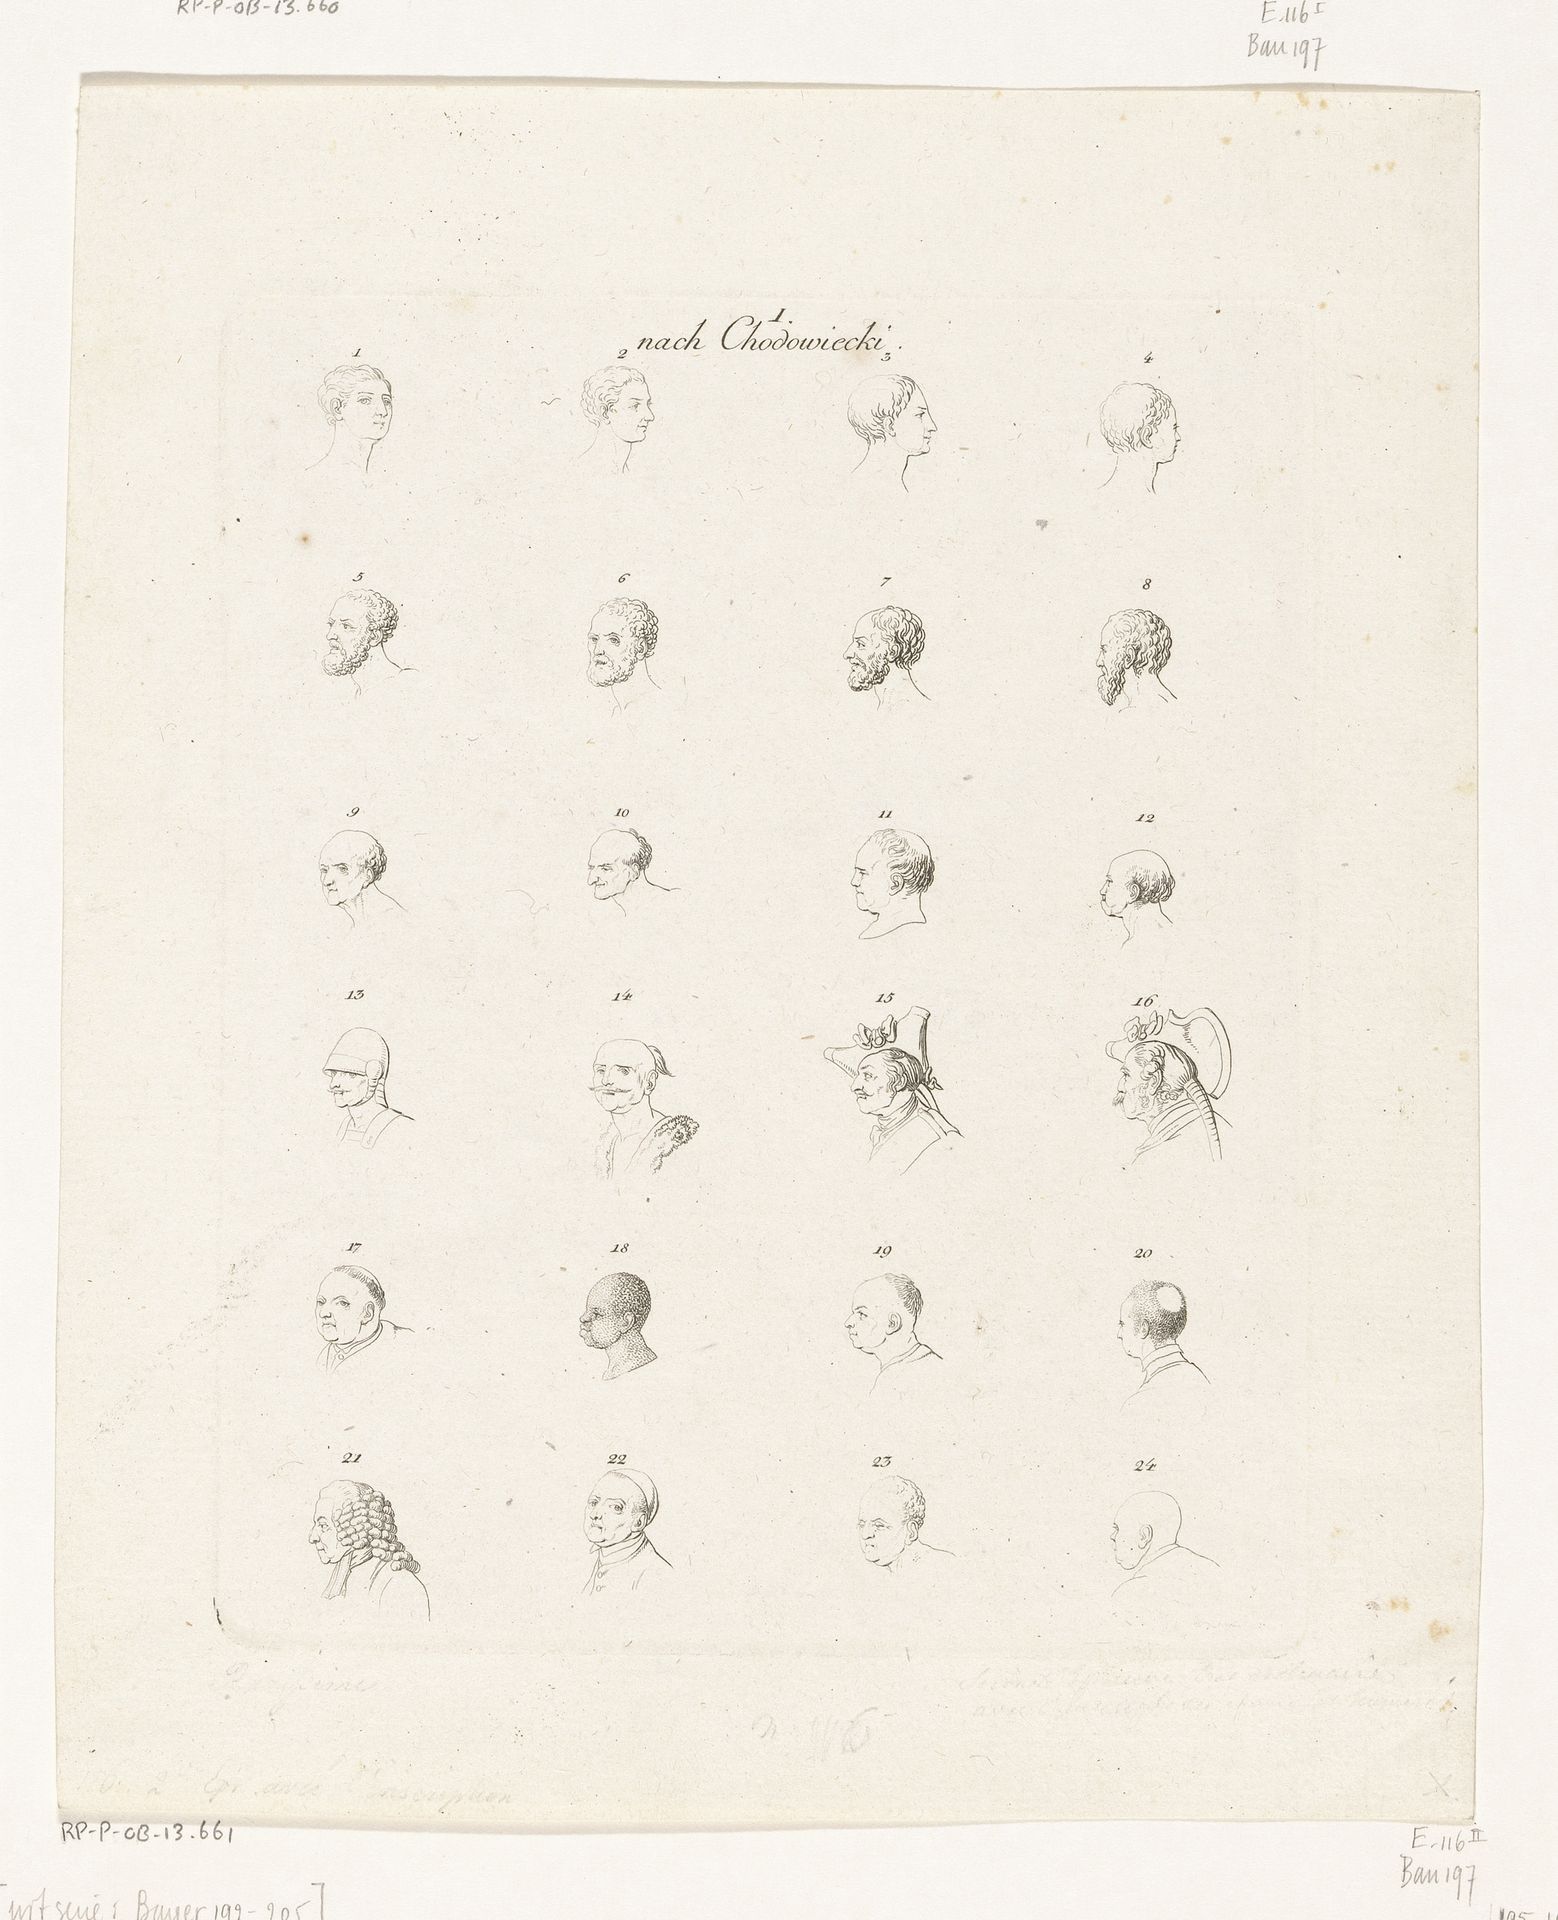 RP-P-OB-13.660
E.116 I
Bau 197
1.
nach Chodowiecki.
1
2
3
4
5
6
7
8
9
10
11
12
13
14
15
16
17
18
19
20
21
22
23
24
2e Ep. avec l'inscription
RP-P-OB-13.661
E.116 II
Bau 197